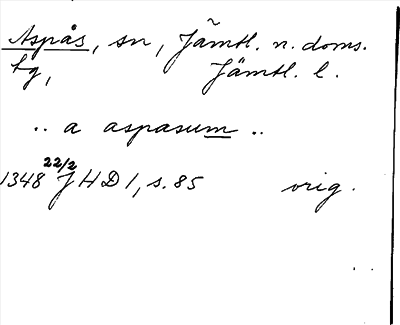 Aspås, sn, Jämtl. n. doms.
tg, Jämtl. l.
.. a aspasum ..
1348 22/2 JHD 1, s. 85 orig.